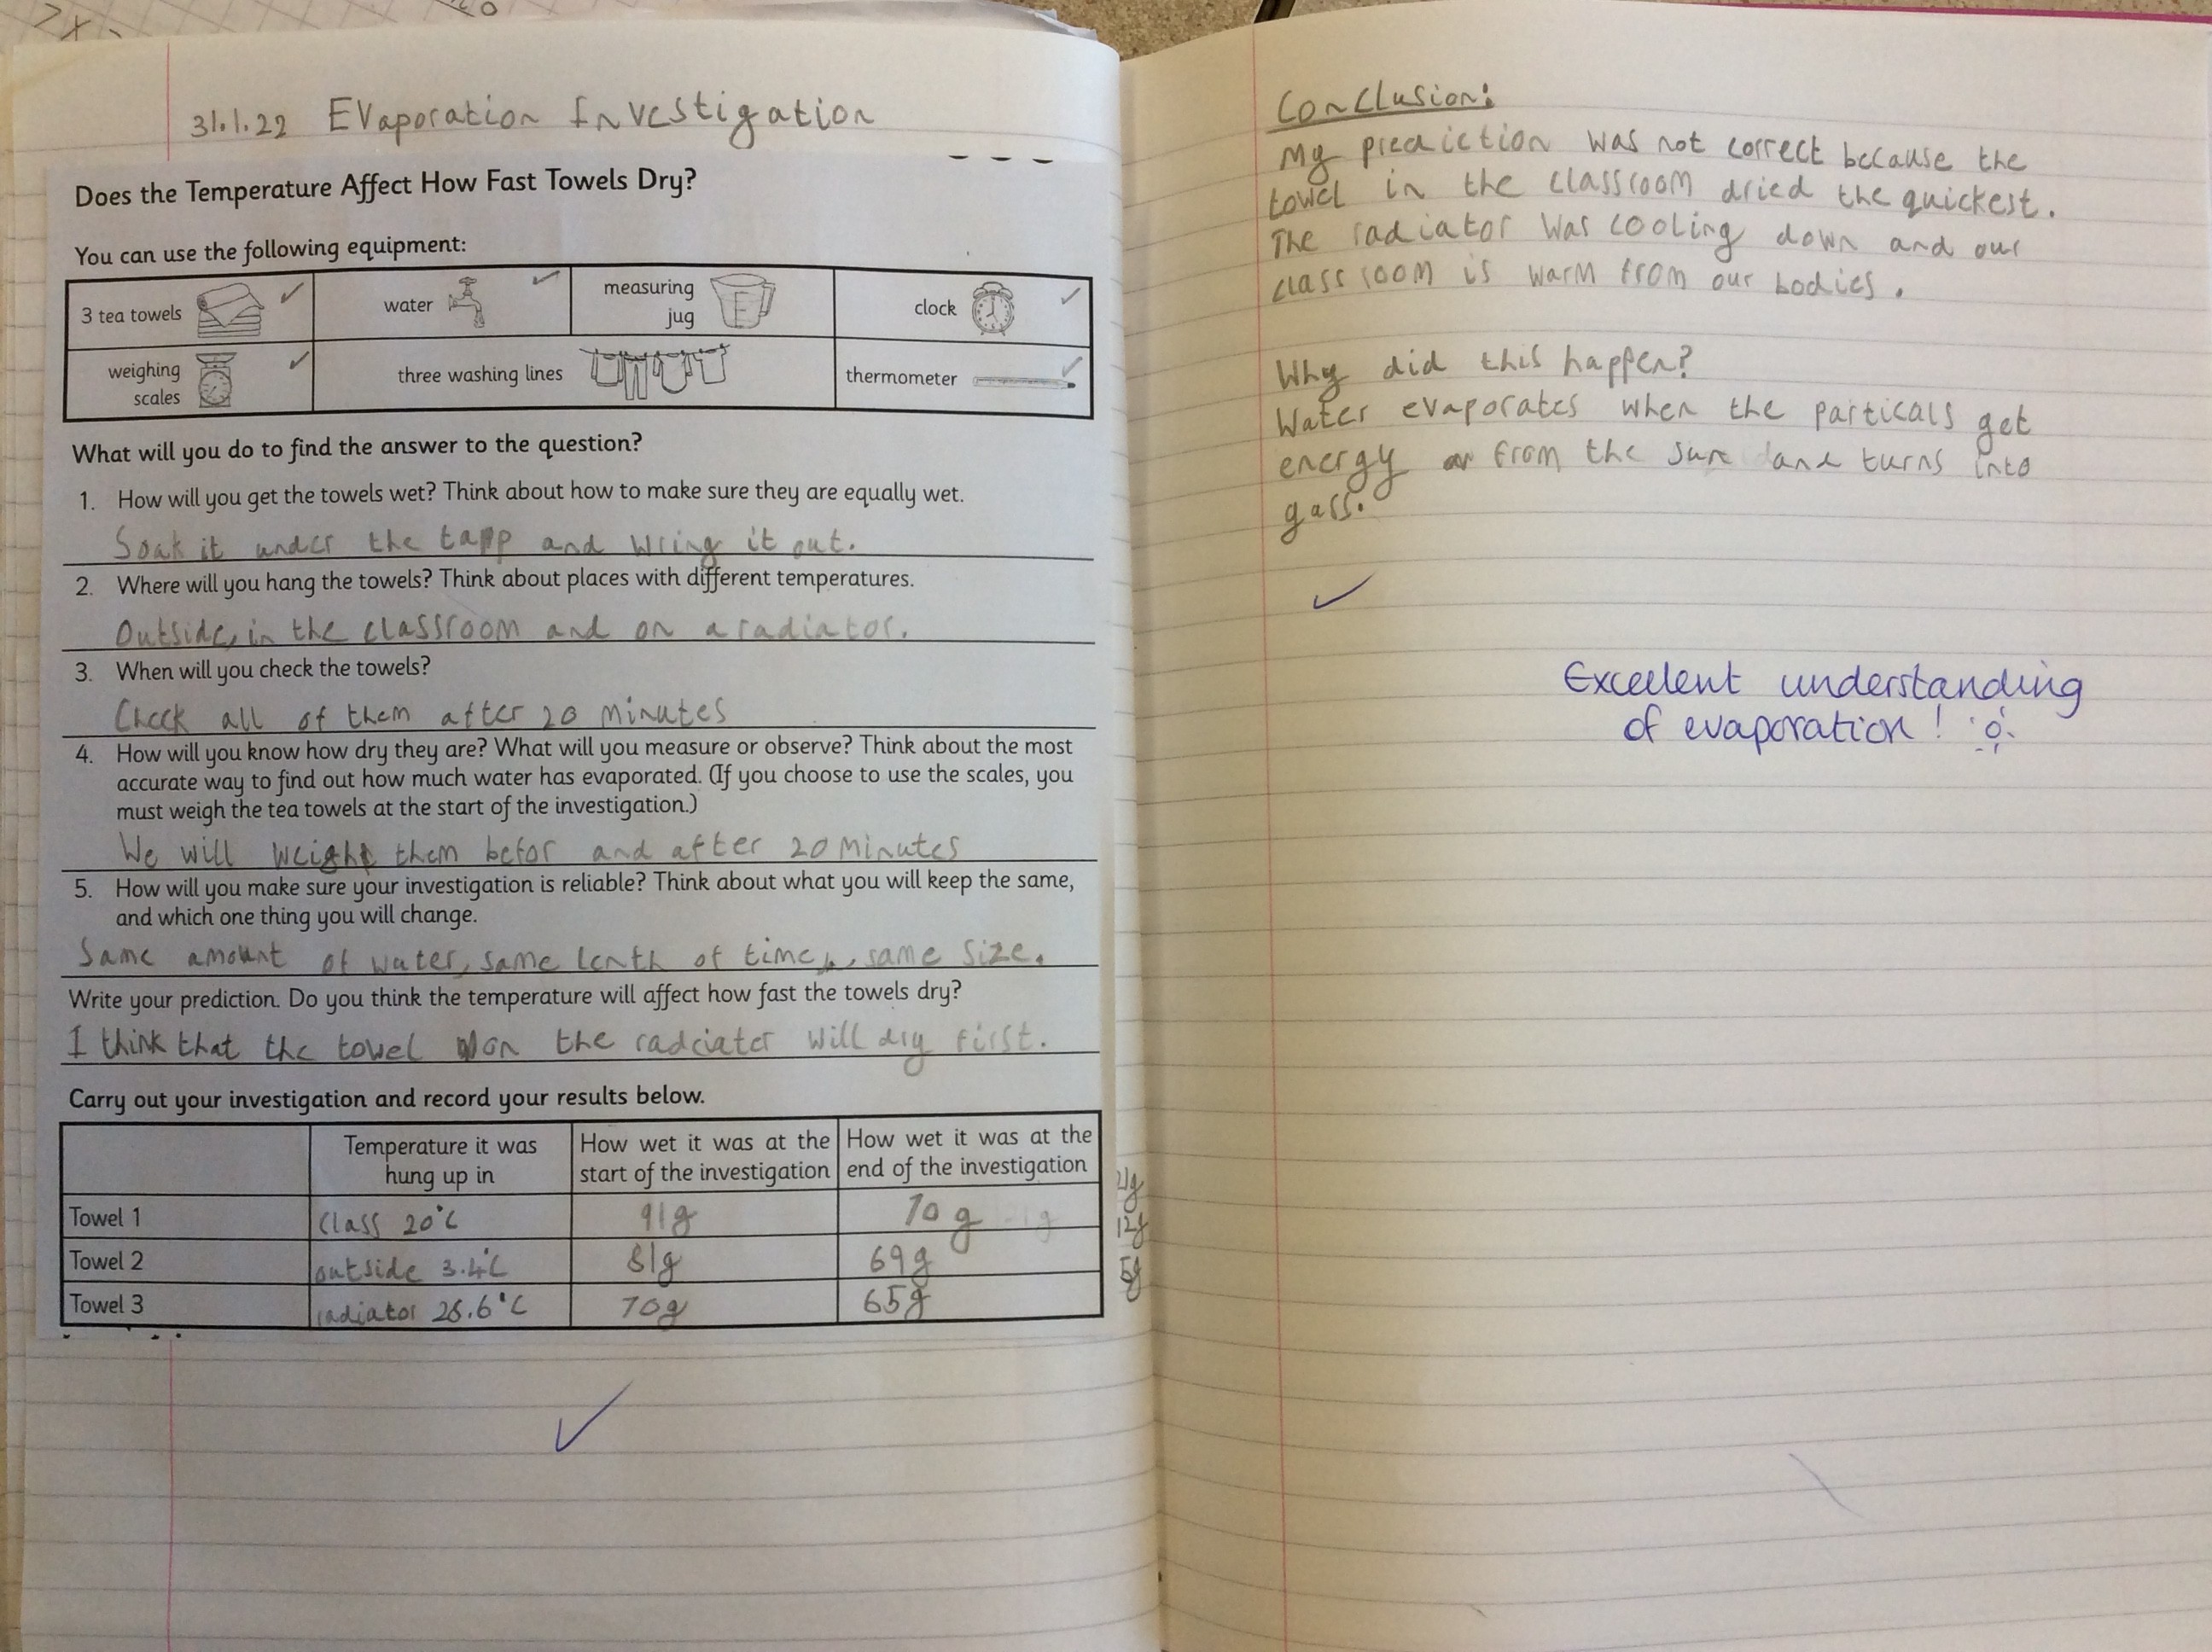 31.1.22 Evaporation Investigation
Does the Temperature Affect How Fast Towels Dry?
You can use the following equipment:
3 tea towels
water
measuring
jug
clock
weighing
scales
three washing lines
thermometer
What will you do to find the answer to the question?
1. How will you get the towels wet? Think about how to make sure they are equally wet.
Soak it under the tapp and wring it out.
2. Where will you hang the towels? Think about places with different temperatures.
Outside, in the classroom and on a radiator.
3. When will you check the towels?
Check all of them after 20 minutes
4. How will you know how dry they are? What will you measure or observe? Think about the most
accurate way to find out how much water has evaporated. (If you choose to use the scales, you
must weigh the tea towels at the start of the investigation.)
We will weight them befor and after 20 minutes
5. How will you make sure your investigation is reliable? Think about what you will keep the same,
and which one thing you will change.
Same amount of water, same lenth of time, same size.
Write your prediction. Do you think the temperature will affect how fast the towels dry?
I think that the towel on the radciater will dry first.
Carry out your investigation and record your results below.
Temperature it was
hung up in
How wet it was at the
start of the investigation
How wet it was at the
end of the investigation
Towel 1 class 20°C 91g 70g 21g
Towel 2 outside 3.4°C 81g 69g 12g
Towel 3 radiator 26.6°C 70g 65g 5g
Conclusion:
My prediction was not correct because the
towel in the classroom dried the quickest.
The radiator was cooling down and our
classroom is warm from our bodies.
Why did this happen?
Water evaporates when the particals get
energy from the sun and turns into
gass.
Excellent understanding
of evaporation!